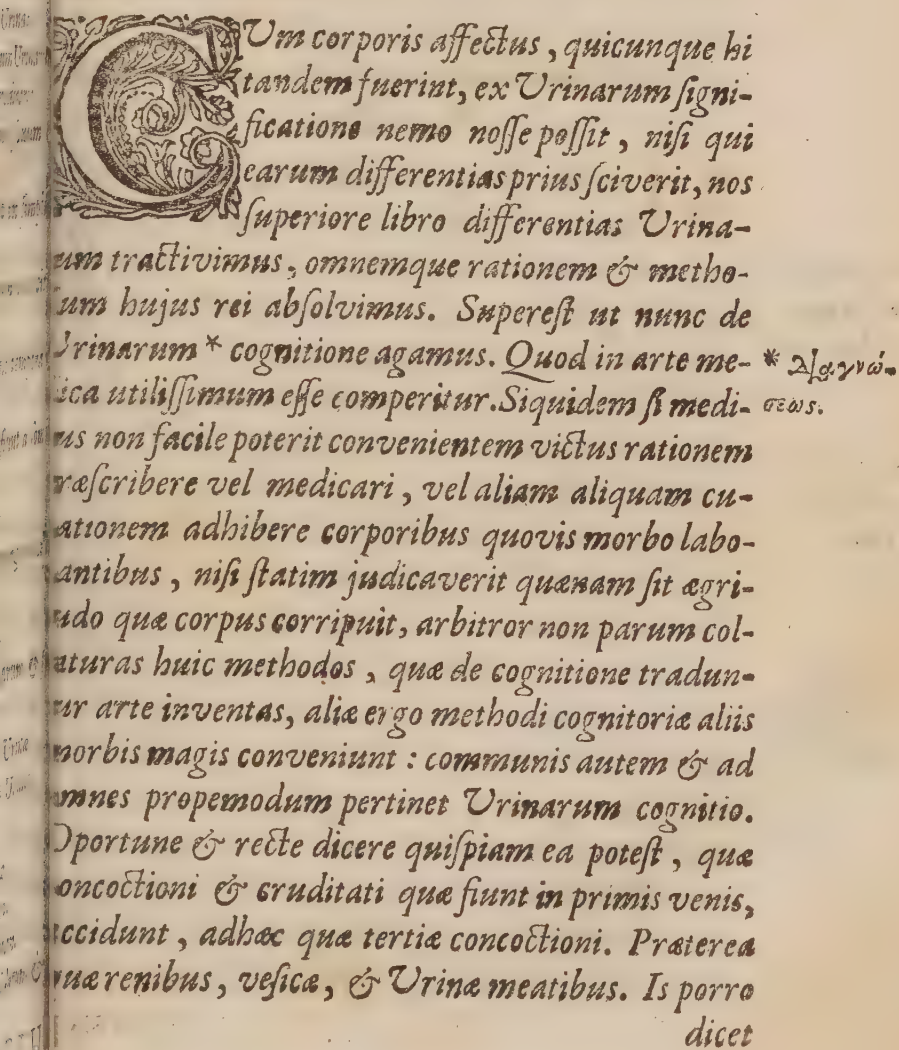 CUm corporis affectus, quicunque hi
tandem fuerint, ex Urinarum ſigni-
ficatione nemo noſſe poſſit, niſi qui
earum differentias prius ſciverit, nos
ſuperiore libro differentias Urina-
um tractivimus, omnemque rationem & metho-
um hujus rei abſolvimus. Supereſt ut nunc de
Urinarum * cognitione agamus. Quod in arte me-
ica utiliſſimum eſſe comperitur. Siquidem ſi medi-
us non facile poterit convenientem victus rationem
ræſcribere vel medicari, vel aliam aliquam cu-
ationem adhibere corporibus quovis morbo labo-
antibus, niſi ſtatim judicaverit quænam ſit ægri-
udo quæ corpus corripuit, arbitror non parum col-
aturas huic methodos, quæ de cognitione tradun-
ur arte inventas, aliæ ergo methodi cognitoriæ aliis
morbis magis conveniunt : communis autem & ad
omnes propemodum pertinet Urinarum cognitio.
Oportune & recte dicere quiſpiam ea poteſt, quæ
oncoctioni & cruditati quæ fiunt in primis venis,
ccidunt, adhæc quæ tertiæ concoctioni. Præterea
quæ renibus, veſicæ, & Urinæ meatibus. Is porro
dicet
* Διαγνώ-
σεως.